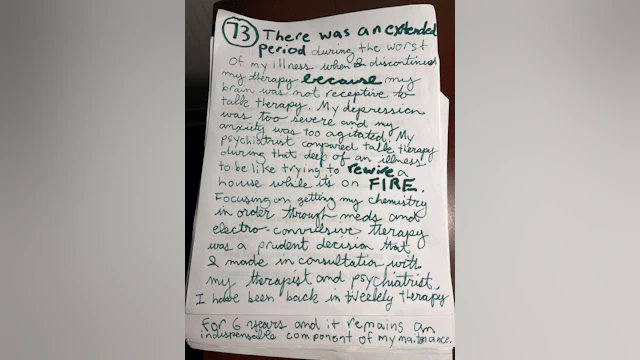 73 There was an extended
period during the worst
of my illness when I discontinued
my therapy because my
brain was not receptive to
talk therapy. My depression
was too severe and my
anxiety was too agitated. My
psychiatrist compared talk therapy
during that deep of an illness
to be like trying to rewire a
house while it's on FIRE.
Focusing on getting my chemistry
in order through meds and
electro-convulsive therapy
was a prudent decision that
I made in consultation with
my therapist and psychiatrist.
I have been back in weekly therapy
for 6 years and it remains an
indispensable component of my maitenance.